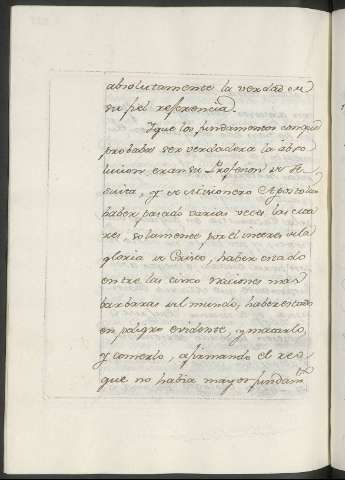 absolutamente la verdad en
su fiel referencia.
Y que los fundamentos con que
probaba ser verdadera la abso
lucion, eran su Profesion de Je
suita, y de Misionero Apostolico
haber pasado varias veces los ma
res, solamente por el interes de la
gloria de Cristo, haber estado
entre las cinco naciones mas
barbaras del mundo, haber estado
en peligro evidente, y matarlo,
y comerlo, afirmando el reo
que no habia mayor fundamto